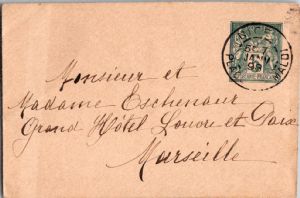 NICE
JANV
98
Monsieur et
Madame Eschenaur
Grand Hôtel Louvre et Paix
Marseille